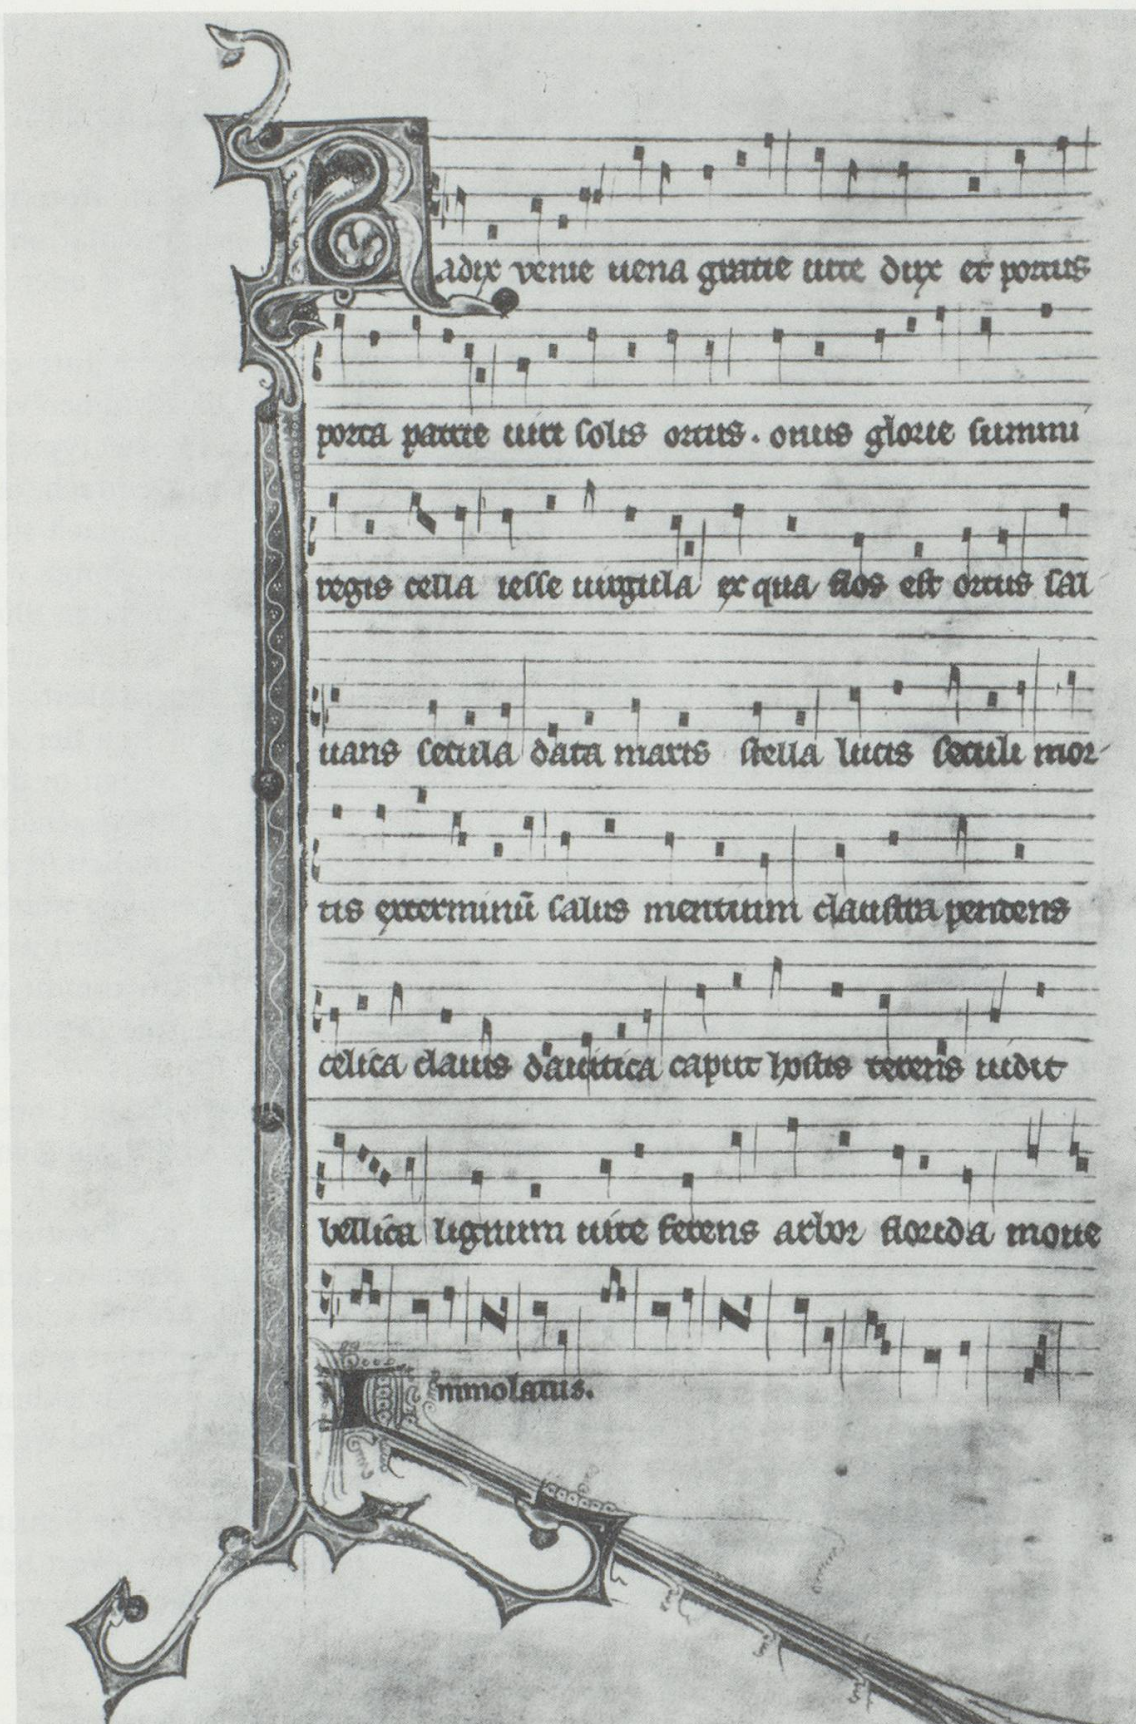 Radix venie uena gratie uite dux et portus
porta patrie uiri solis ortus. onus glorie summi
regis cella iesse uirgula ex qua flos est ortus sal
uans secula data maris stella lucis seculi mor-
tis exterminũ salus mentium claustra penitens
celica clauis dauitica caput hostis terens uidit
bellica lignum uite ferens arbor florida moue
Immolatus.